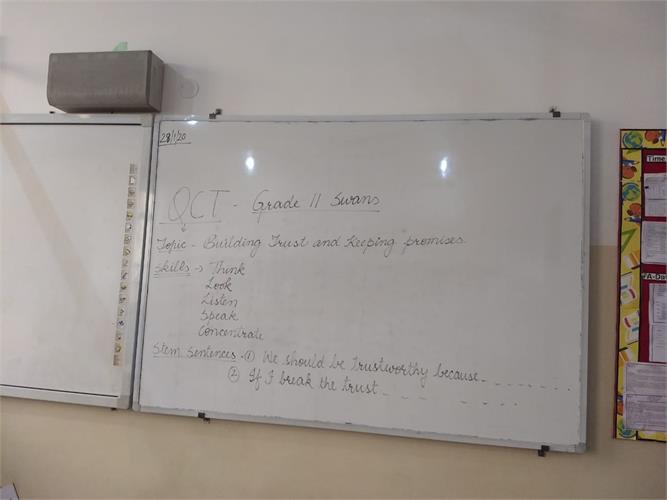 28/1/20
QCT - Grade II Swans
Topic - Building Trust and Keeping promises.
Skills -> Think
Look
Listen
Speak
Concentrate
Stem Sentences - ① We should be Trustworthy because
② If I break the trust
Time